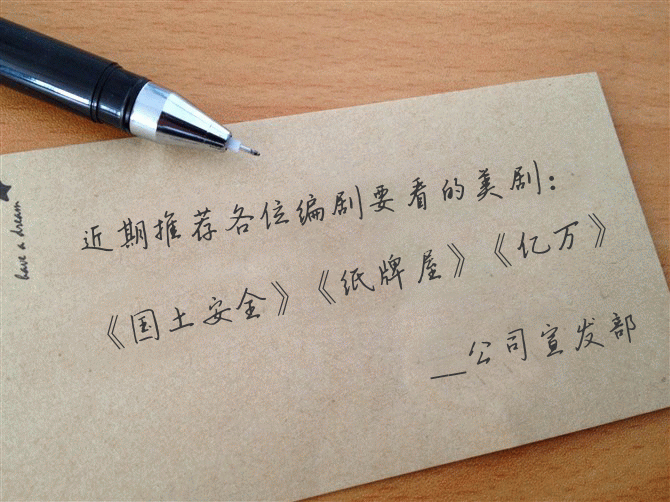 近期推荐各位编剧要看的美剧：
《国土安全》《纸牌屋》《亿万》
—公司宣发部
have a dream